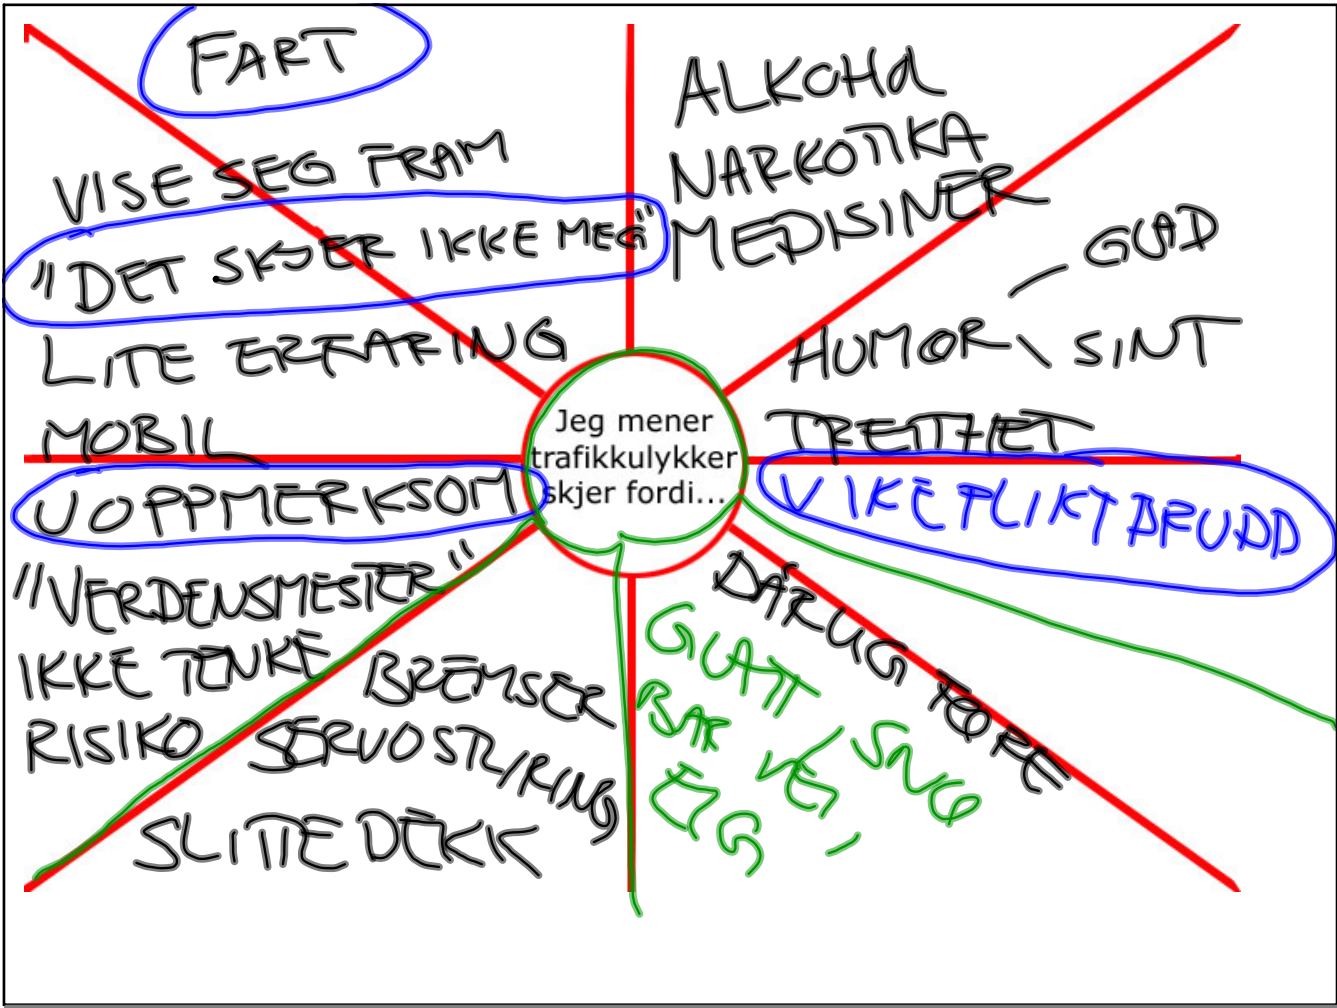 FART
VISE SEG FRAM
"DET SKJER IKKE MEG"
LITE ERFARING
MOBIL
UOPPMERKSOM
"VERDENSMESTER"
IKKE TENKE
RISIKO
BREMSER
SERVOSTYRING
SLITTE DEKK
ALKOHOL
NARKOTIKA
MEDISINER
GLAD
HUMOR
SINT
TRETTHET
VIKEPLIKTBRUDD
Jeg mener
trafikkulykker
skjer fordi...
DÅRLIG FØRE
GLATT
BAR VEI, SNØ
ELG